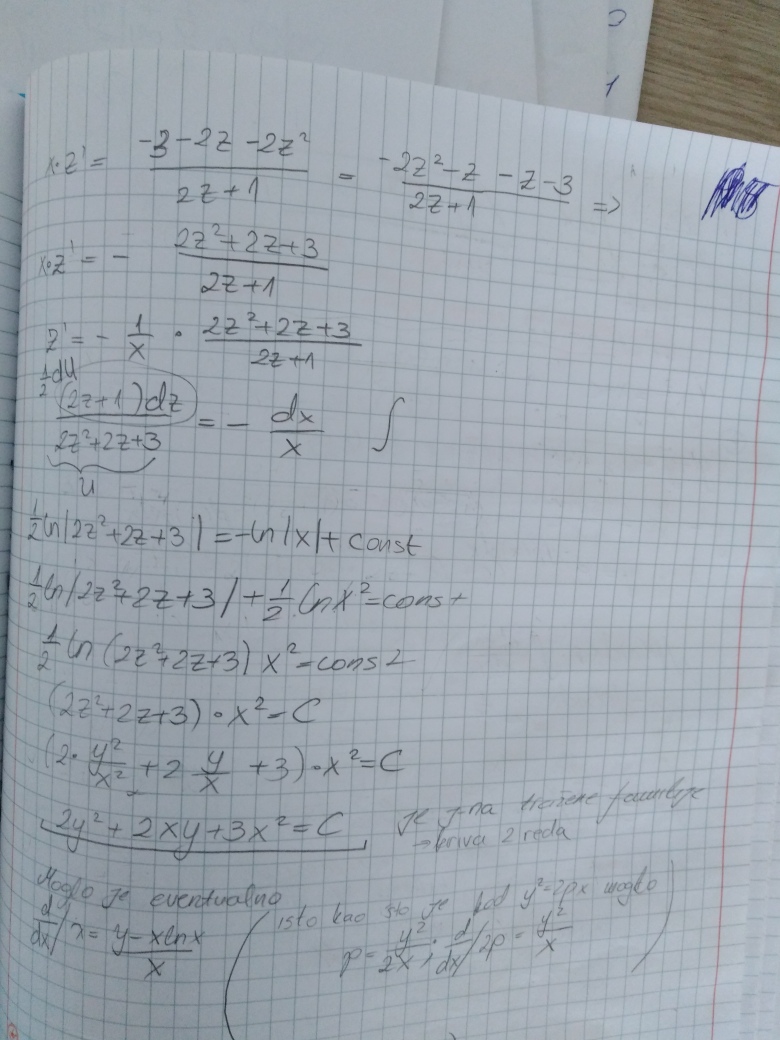 x·z' = (-3-2z-2z²)/(2z+1) = (-2z²-z-z-3)/(2z+1) =>
x·z' = - (2z²+2z+3)/(2z+1)
z' = - 1/x · (2z²+2z+3)/(2z+1)
1/2 du
(2z+1)dz/(2z²+2z+3) = - dx/x ∫
u
1/2 ln|2z²+2z+3| = -ln|x| + const
1/2 ln|2z²+2z+3| + 1/2 ln x² = const
1/2 ln (2z²+2z+3) x² = const
(2z²+2z+3)·x² = C
(2· y²/x² + 2 y/x + 3)·x² = C
2y² + 2xy + 3x² = C je j-na tražene familije
→ kriva 2 reda
Moglo je eventualno
d/dx/ = (y-xlnx)/x
(isto kao što je kod y²=2px moglo
p = y²/2x; d/dx/ 2p = y²/x)